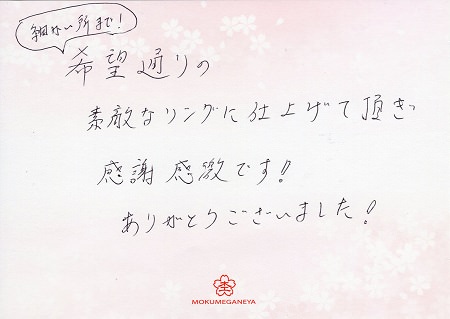 細かい所まで!
希望通りの
素敵なリングに仕上げて頂き
感謝感激です!
ありがとうございました!
MOKUMEGANEYA